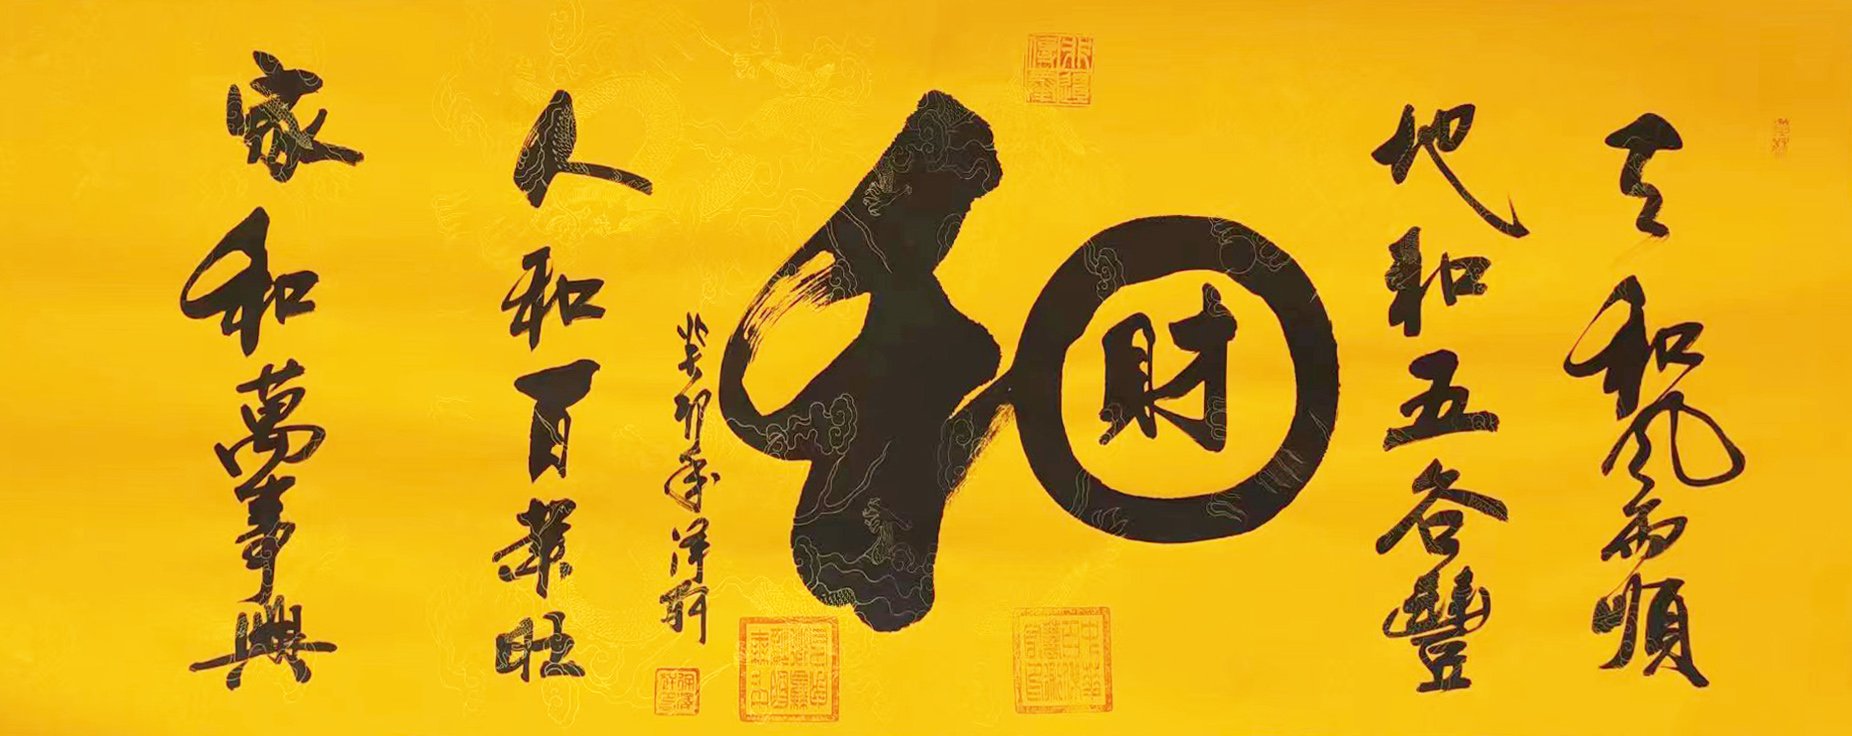 天和風雨順
地和五谷豐
和
財
癸卯年澤羽
人和百業旺
家和萬事興